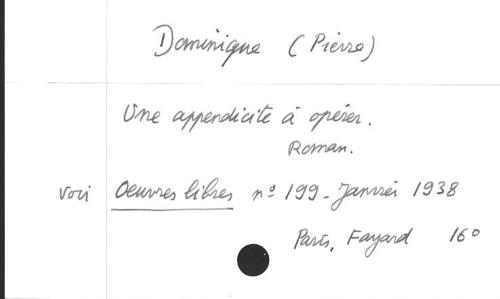 Dominique (Pierre)
Une appendicite à opérer.
Roman.
voir Oeuvres libres nº 199 - Janvier 1938
Paris, Fayard 16º